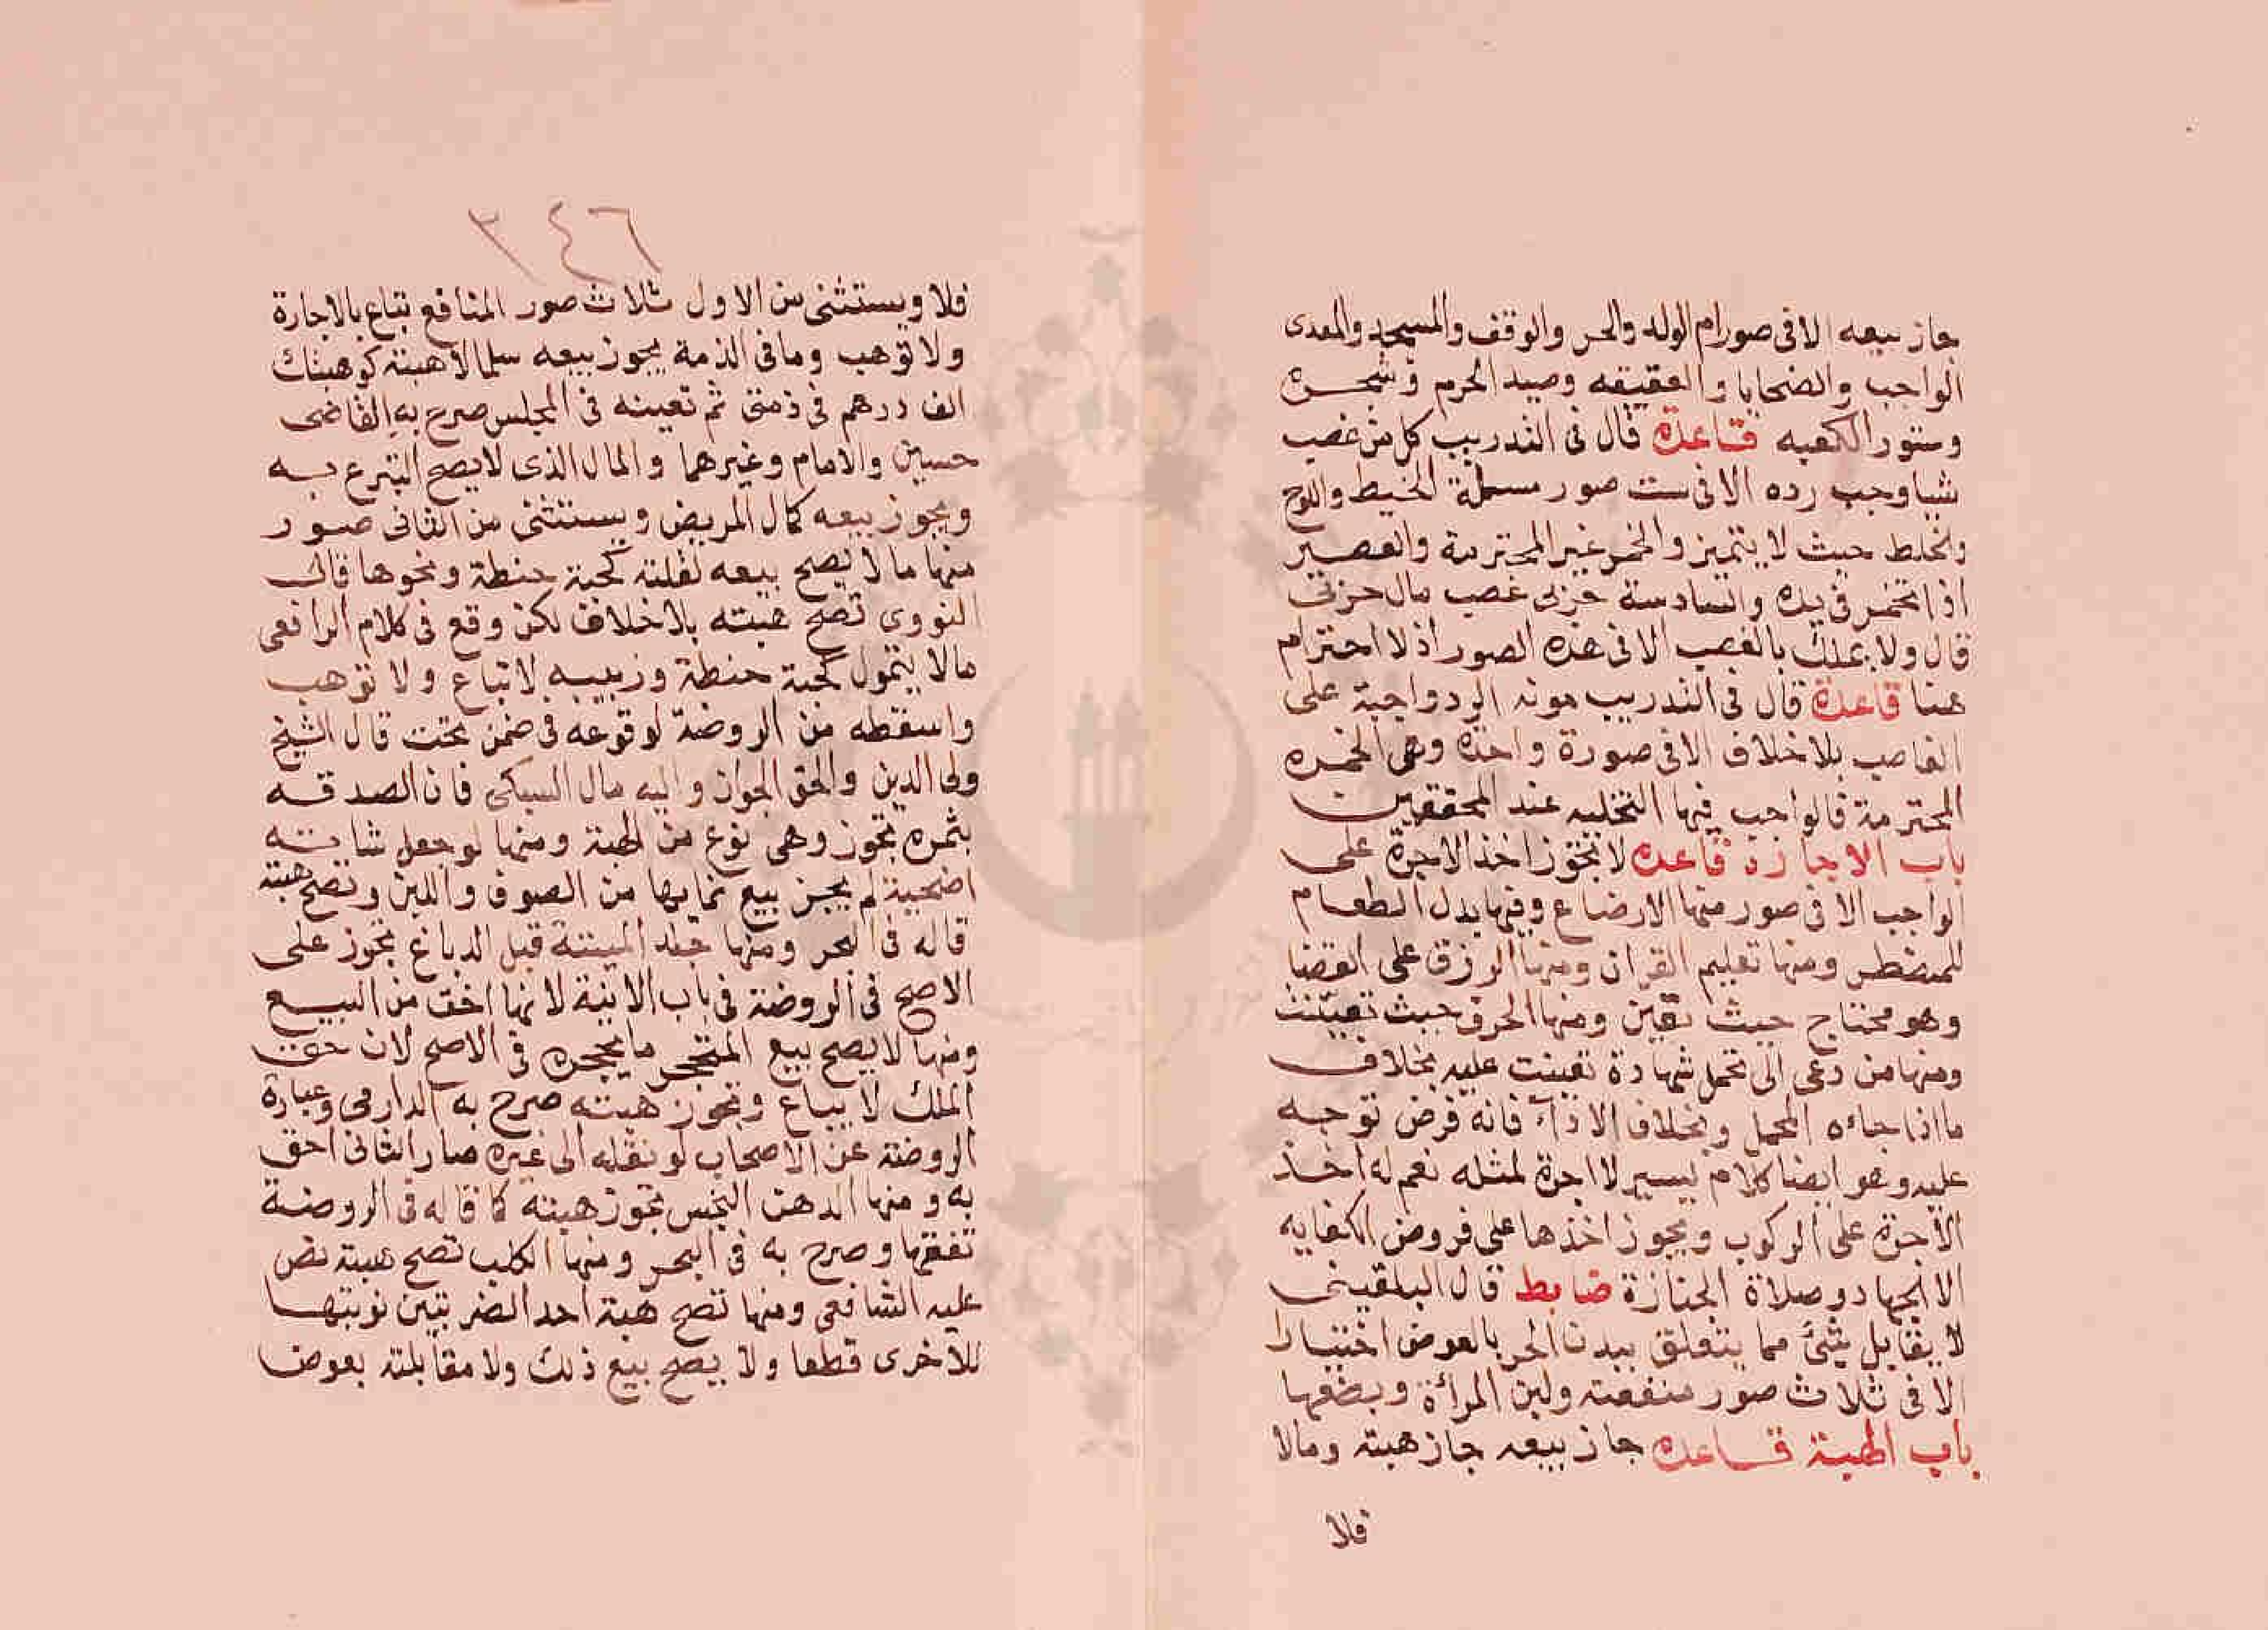 جاز بيعه الا فى صور ام الولد والحر والوقف والمسجد والهدى
الواجب والضحايا والعقيقه وصيد الحرم وشجره
وستور الكعبه قاعدة قال فى التدريب كل من غصب
شيا وجب رده الا فى ست صور مسئلة الخيط واللوح
والخلط حيث لا يتميز والخمر غير المحترمة والعصير
اذا تخمر فى يده والسادسة حربى غصب مال حربى
قال ولا يملك بالغصب الا فى هذه الصور اذ لا احترام
هنا قاعدة قال فى التدريب مونه الرد واجبة على
الغاصب بلا خلاف الا فى صورة واحده وهى الخمره
المحترمة فالواجب فيها التخليه عند المحققين
باب الاجارة قاعده لا تجوز اخذ الاجرة على
الواجب الا فى صور منها الارضاع وفيها بدل الطعام
للمضطر ومنها تعليم القران ومنها الرزق على القضا
وهو محتاج حيث تعين ومنها الحرف حيث تعينت
ومنها من دعى الى تحمل شهادة تعينت عليه بخلاف
ما اذا جاءه المحمل وبخلاف الاداء فانه فرض توجه
عليه وهو ايضا كلام يسير لا اجرة لمثله نعم له اخذ
الاجرة على الركوب ويجوز اخذها على فروض الكفايه
الا الجهاد وصلاة الجنازة ضابط قال البلقينى
لا يقابل شئ مما يتعلق ببدن الحر بالعوض اختيارا
الا فى ثلاث صور منفعته ولبن المرأة وبضعها
باب الهبة قاعده جاز بيعه جاز هبته ومالا
فلا
٣٤٦
فلا ويستثنى من الاول ثلاث صور المنافع تباع بالاجارة
ولا توهب وما فى الذمة يجوز بيعه سلما لا هبته كوهبتك
الف درهم فى ذمتى ثم تعيينه فى المجلس صرح به القاضى
حسين والامام وغيرهما والمال الذى لا يصح التبرع به
ويجوز بيعه كمال المريض ويستثنى من الثانى صور
منها ما لا يصح بيعه لقلته كحبة حنطة ونحوها قال
النووى تصح هبته بلا خلاف لكن وقع فى كلام الرافعى
مالا يتمول كحبة حنطة وزبيبه لا تباع ولا توهب
واسقطه من الروضة لوقوعه فى ضمن بحث قال الشيخ
ولى الدين والحق الجواز واليه مال السبكى فان الصدقه
بثمره تجوز وهى نوع من الهبة ومنها لو جعل شاته
اضحية لم يجز بيع نمايها من الصوف واللبن وتصح هبته
قاله فى البحر ومنها جلد الميتة قبل الدباغ تجوز على
الاصح فى الروضة فى باب الانية لانها اخف من البيع
ومنها لا يصح بيع المتحجر ما يحجره فى الاصح لان حق
الملك لا يباع وتجوز هبته صرح به الدارمى وعبارة
الروضة عن الاصحاب لو نقله الى غيره صار الثانى احق
به ومنها الدهن النجس تجوز هبته كما قاله فى الروضة
تفقها وصرح به فى البحر ومنها الكلب تصح هبته نص
عليه الشافعى ومنها تصح هبة احد الضربتين نوبتها
للاخرى قطعا ولا يصح بيع ذلك ولا مقابلته بعوض